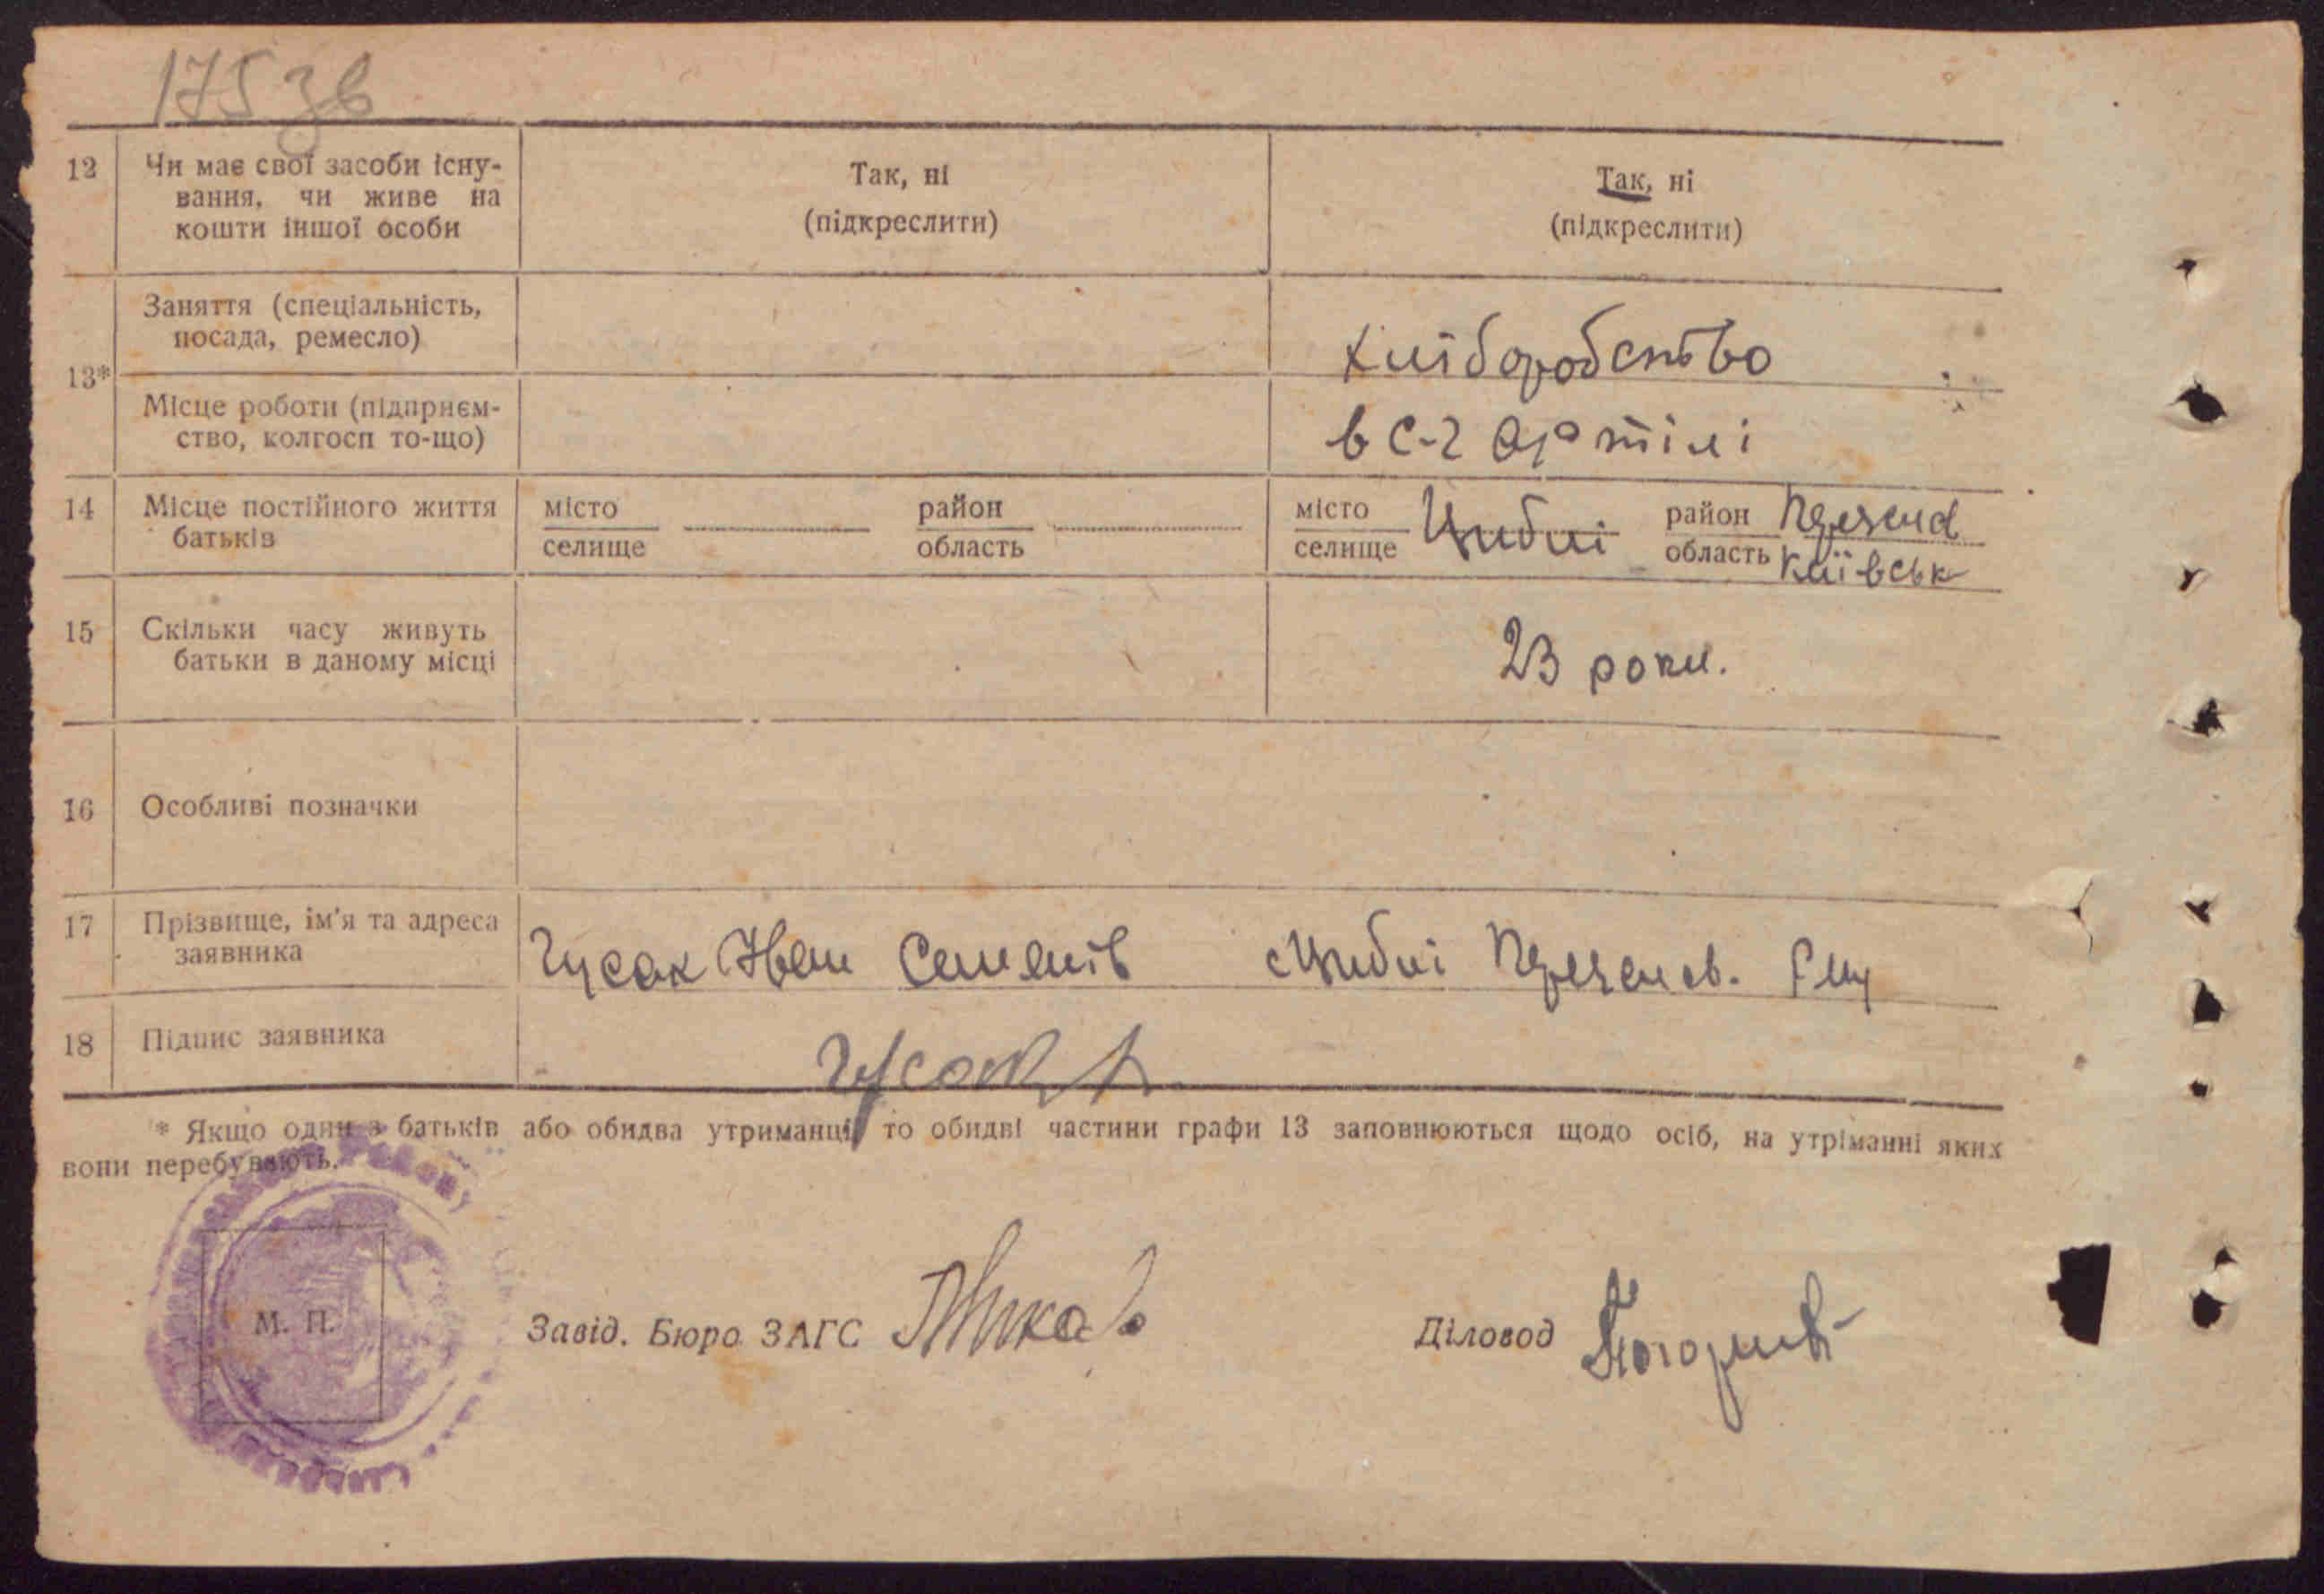 175 зв
12 Чи має свої засоби існу-
вання, чи живе на
кошти іншої особи
Так, ні
(підкреслити)
Так, ні
(підкреслити)
13*
Заняття (спеціальність,
посада, ремесло)
хліборобство
Місце роботи (підприєм-
ство, колгосп то-що)
в с-г артілі
14 Місце постійного життя
батьків
місто
селище
район
область
місто
селище
Циблі
район
область
Київськ
15 Скільки часу живуть
батьки в даному місці
23 роки.
16 Особливі позначки
17 Прізвище, ім'я та адреса
заявника
Гусак Іван Семенів с Циблі
18 Підпис заявника
Гусак
* Якщо один з батьків або обидва утриманці, то обидві частини графи 13 заповнюються щодо осіб, на утріманні яких
вони перебувають.
М. П.
Завід. Бюро ЗАГС
Діловод